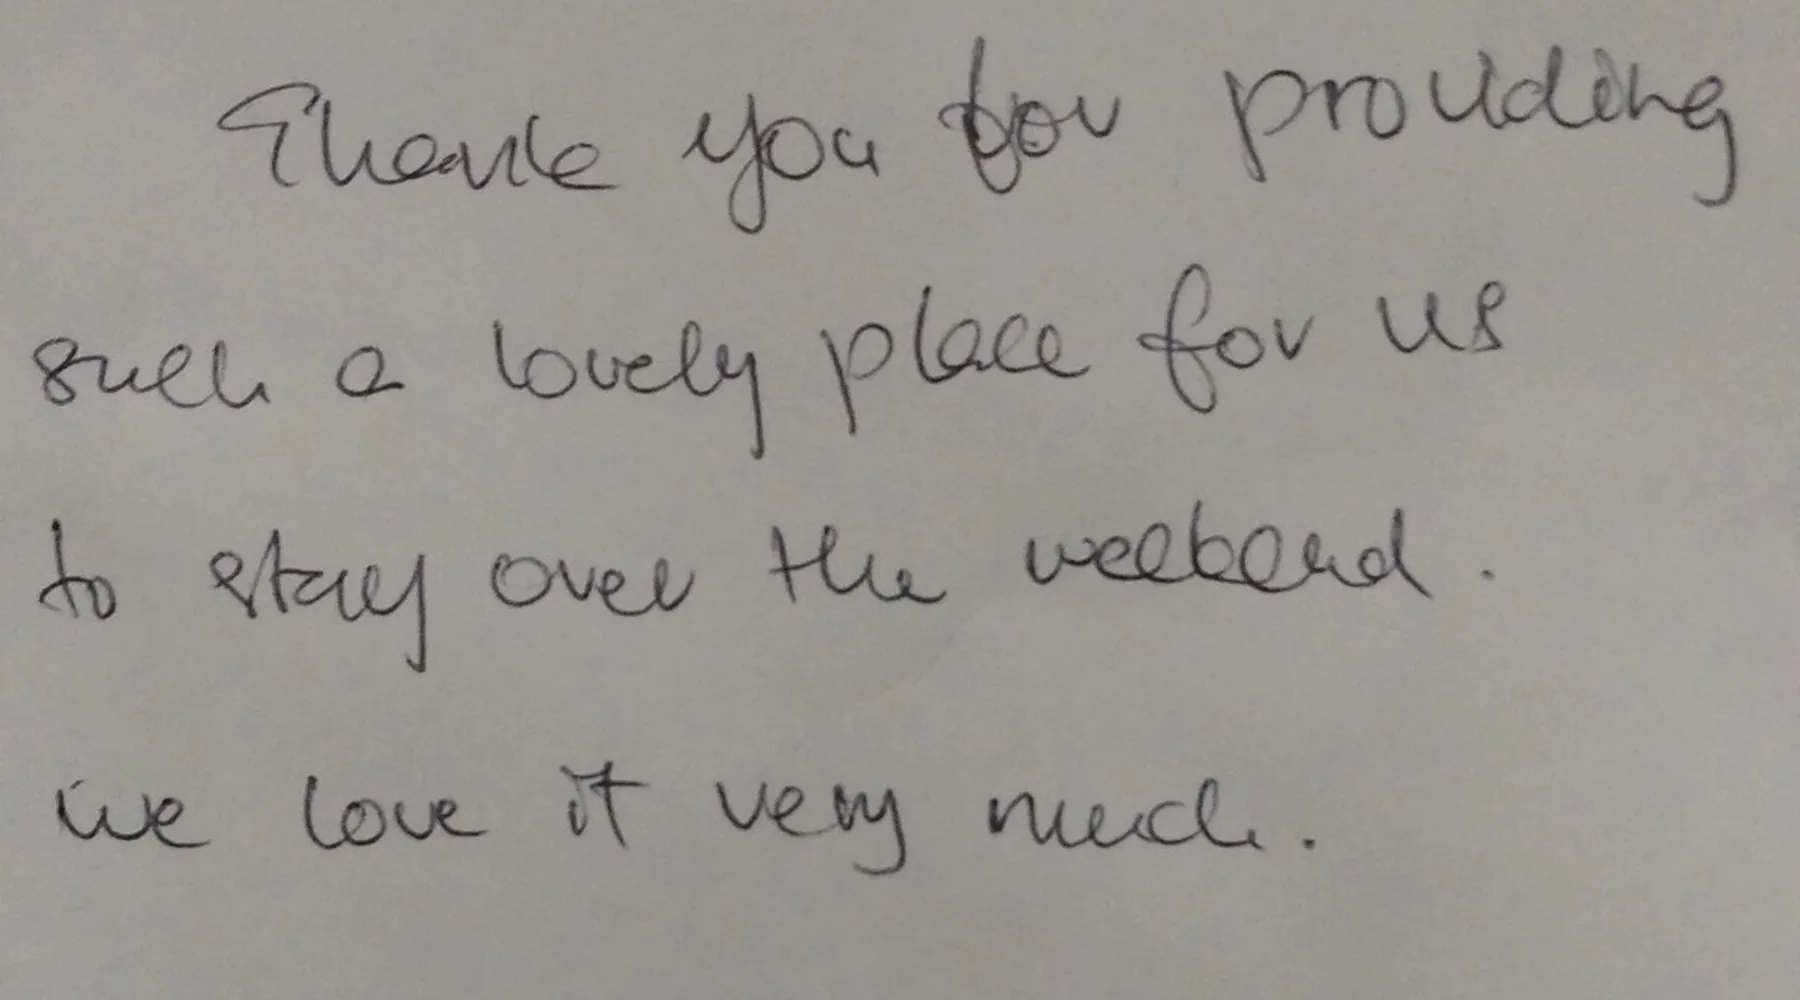 Thank you for providing
such a lovely place for us
to stay over the weekend.
we love it very much.